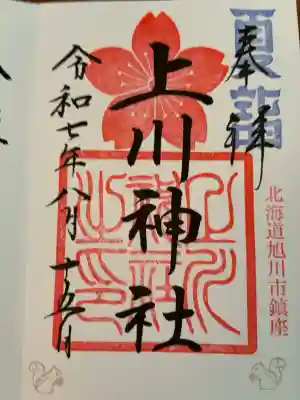 夏詣
奉拝
北海道旭川市鎮座
上川神社
上川神社之印
令和七年八月十五日